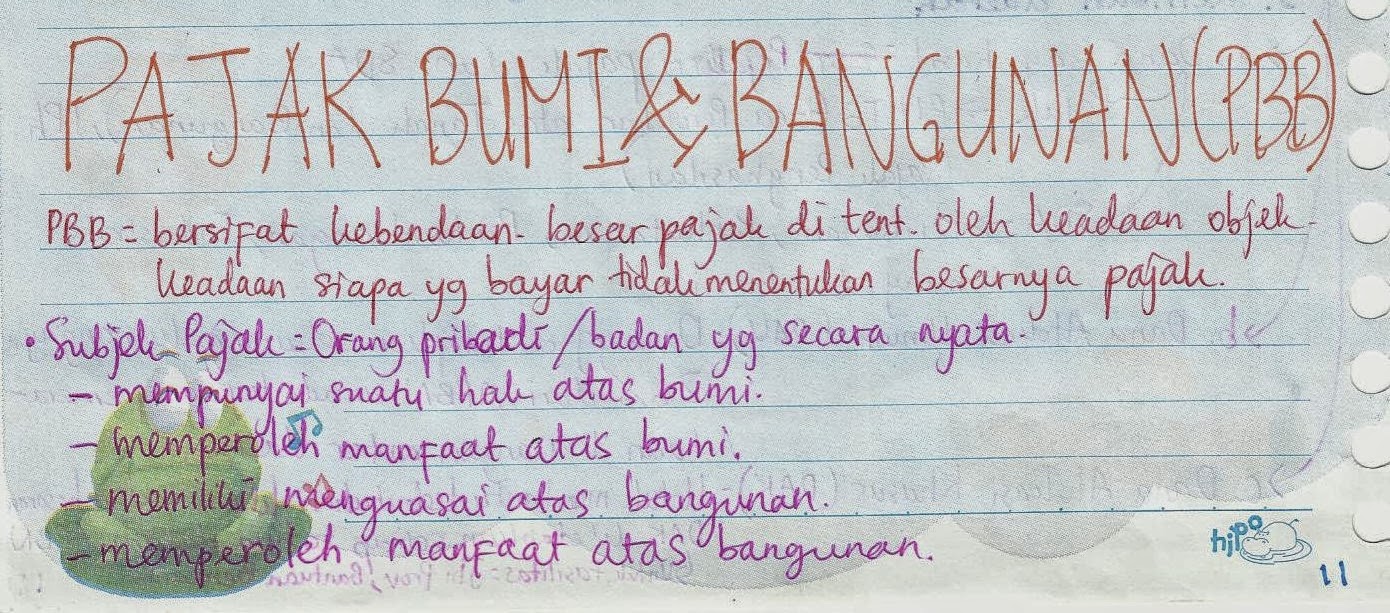 PAJAK BUMI & BANGUNAN (PBB)
PBB = bersifat kebendaan - besar pajak di tent. oleh keadaan objek -
keadaan siapa yg bayar tidak menentukan besarnya pajak.
• Subjek Pajak = Orang pribadi / badan yg secara nyata.
- mempunyai suatu hak atas bumi.
- memperoleh manfaat atas bumi.
- memiliki menguasai atas bangunan.
- memperoleh manfaat atas bangunan.
hipo
11